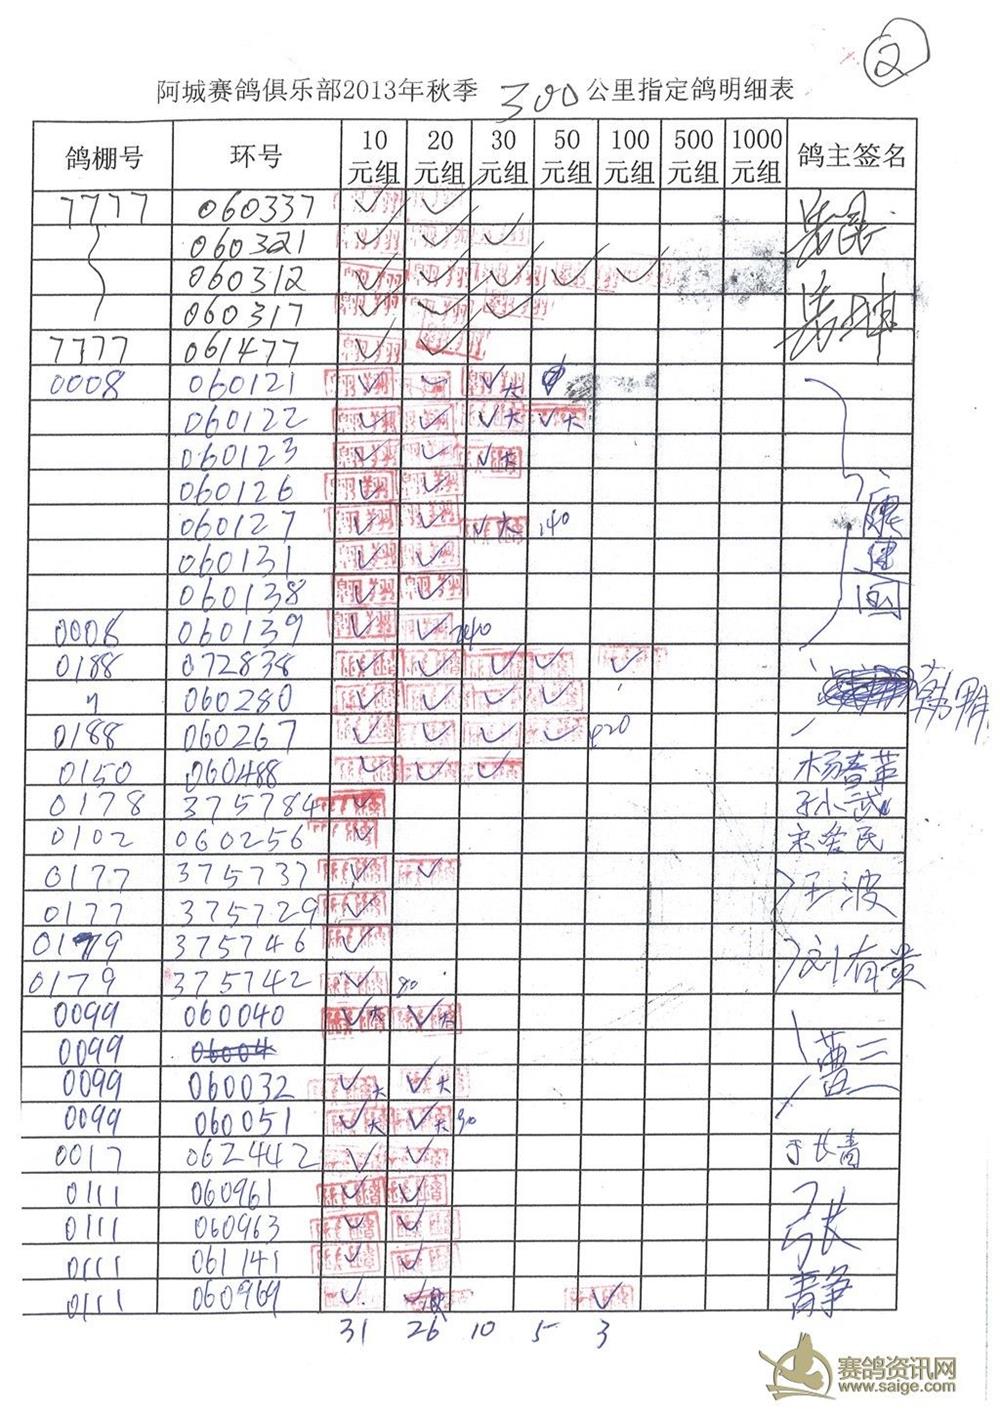 2
阿城赛鸽俱乐部2013年秋季 300 公里指定鸽明细表
鸽棚号 环号 10元组 20元组 30元组 50元组 100元组 500元组 1000元组 鸽主签名
7777 060337 ✓ ✓
060321 ✓ ✓ ✓
060312 ✓ ✓ ✓ ✓ ✓
060317 ✓ ✓ ✓
7777 061477 ✓ ✓
0008 060121 ✓ ✓ ✓大
060122 ✓ ✓ ✓大 ✓大
060123 ✓ ✓ ✓大
060126 ✓ ✓
060127 ✓ ✓ ✓大 140
060131 ✓ ✓
060138 ✓ ✓
康建国
0006 060139 ✓ ✓
0188 072838 ✓ ✓ ✓ ✓ ✓
〃 060280 ✓ ✓ ✓ ✓
0188 060267 ✓ ✓ ✓ ✓
0150 060488 ✓ ✓ ✓ 杨春革
0178 375784 ✓
0102 060256 ✓
0177 375737 ✓ ✓ 王波
0177 375729 ✓
0179 375746 ✓ 刘有贵
0179 375742 ✓ 80
0099 060040 ✓大 ✓大
0099 06004
0099 060032 ✓大 ✓大
0099 060051 ✓大 ✓大
0017 062442 ✓ ✓ 于长青
0111 060961 ✓ ✓
0111 060963 ✓ ✓ 张
0111 061141 ✓ ✓
0111 060969 ✓ ✓ ✓ 静
31 26 10 5 3
赛鸽资讯网
www.saige.com